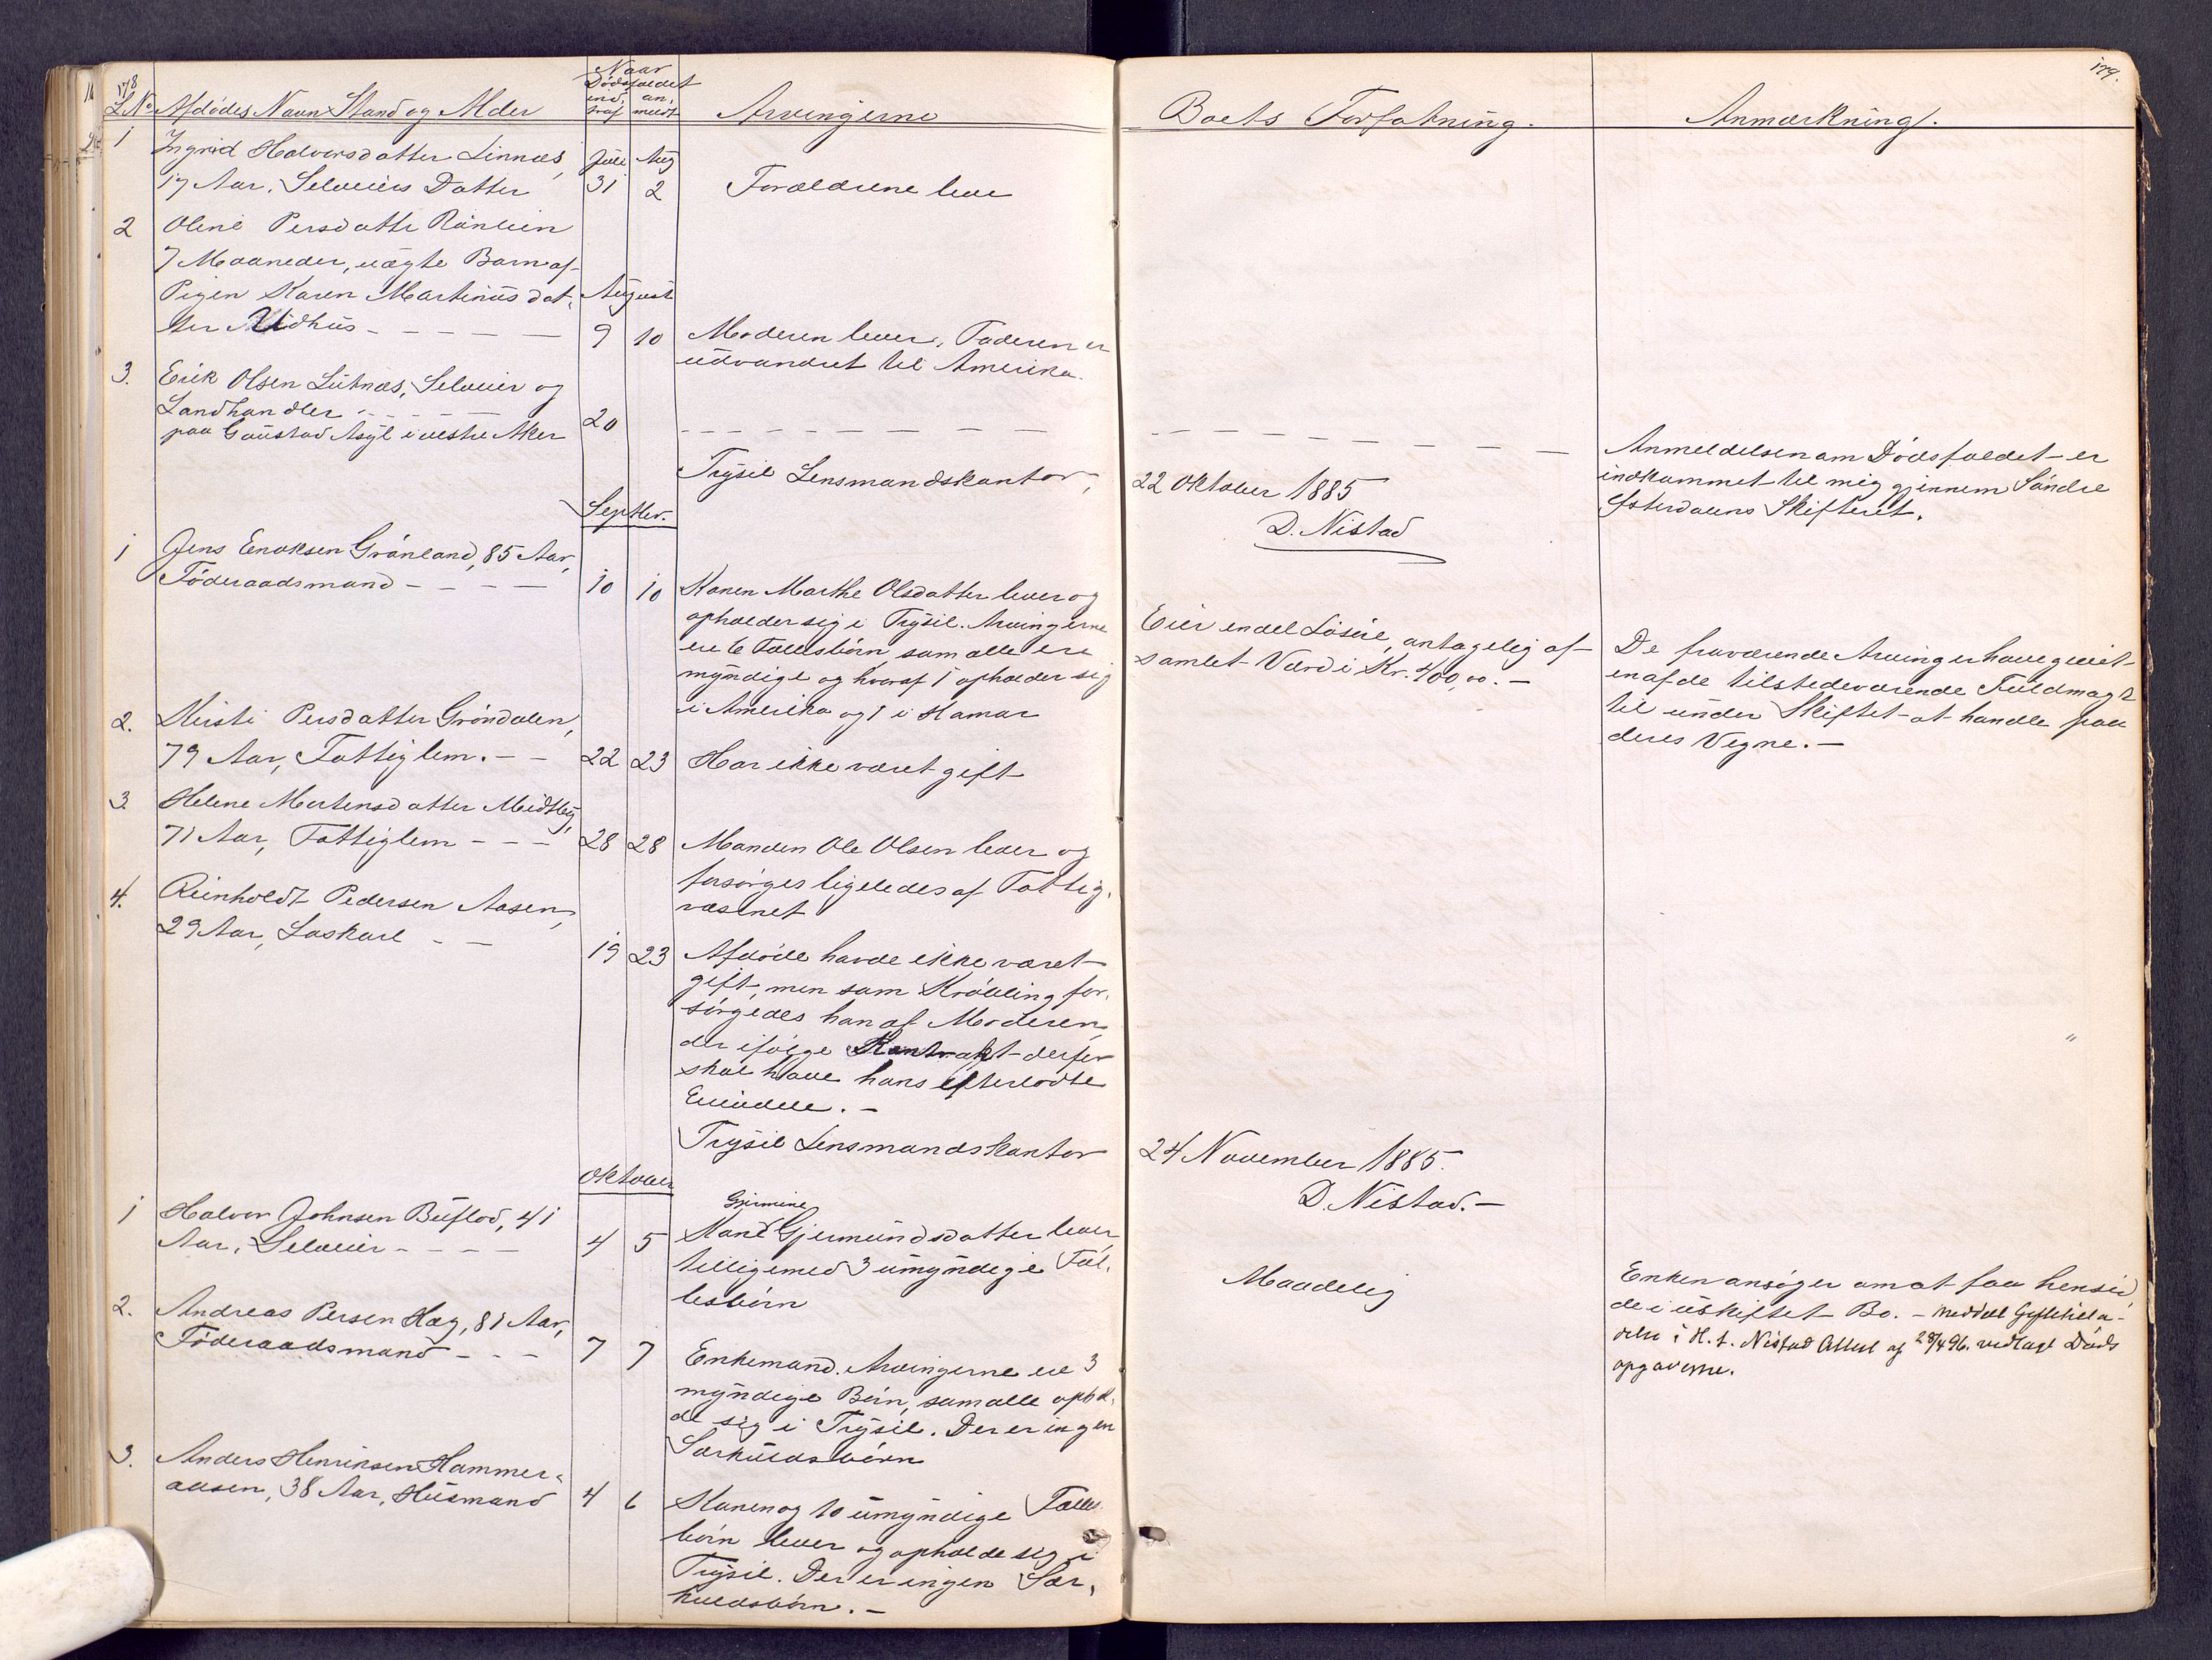 178
L.No Afdødes Navn Stand og Alder
Naar
Dødsfaldet
ind-
traf
an-
meldt
Arvingerne
1 Ingrid Halvorsdatter Linnæs,
17 Aar, Selveiers Datter
Juli 31 Aug 2
Forældrene leve
2 Oline Persdatter Rönlien
7 Maaneder, uægte Barn af
Pigen Karen Martinusdat-
ter Nidhus - - - - -
August
9 10
Moderen lever, Faderen er
udvandret til Amerika.
3. Erik Olsen Lutnæs, Selveier og
Landhandler - - - -
paa Gaustad Asyl i vestre Aker
20
Trysil Lensmandskontor,
Septbr.
1 Jens Enoksen Grönland, 85 Aar,
Föderaadsmand - - - -
10 10
Konen Marthe Olsdatter lever og
opholder sig i Trysil. Arvingerne
ere 6 Fællesbörn, som alle ere
myndige og hvoraf 1 opholder sig
i Amerika og 1 i Hamar
2. Kirsti Persdatter Gröndalen,
79 Aar, Fattiglem. - -
22 23
Har ikke været gift
3. Helene Mortensdatter Midtbÿ,
71 Aar, Fattiglem - - -
28 28
Manden Ole Olsen lever og
forsörges ligeledes af Fattig-
væsenet
4. Reinholdt Pedersen Aasen,
29 Aar, Løskarl - -
19 23
Afdöde havde ikke været
gift, men som Kröbling for-
sörgedes han af Moderen,
der ifölge Kontrakt derfor
skal have hans efterladte
Eiendele. -
Trysil Lensmandskontor
Oktober
1 Halvor Johnsen Buflod, 41
Aar, Selveier - - - -
4 5
Gjermine
Kone Gjermundsdatter lever
tilligemed 3 umyndige Fæl-
lesbörn
2. Andreas Persen Hag, 81 Aar,
Föderaadsmand - - -
7 7
Enkemand. Arvingerne ere 3
myndige Börn, som alle ophol-
de sig i Trysil. Der er ingen
Særkuldsbörn
3. Anders Henriksen Hammer-
aasen, 38 Aar, Husmand
4 6
Konen og 10 umyndige Fælles-
börn lever og opholde sig i
Trysil. Der er ingen Sær-
kuldsbörn. -
179.
Boets Forfatning.
Anmærkning.
Anmeldelsen om Dödsfaldet er
indkommet til mig gjennem Söndre
Østerdalens Skifteret.
22 Oktober 1885
D. Nistad
Eier endel Lösöre, antagelig af
samlet Værdi Kr. 400,00. -
De fraværende Arvinger have givet
en af de tilstedeværende Fuldmagt
til under Skiftet at handle paa
deres Vegne. -
24 November 1885.
D. Nistad. -
Maadelig
Enken ansöger om at faa hensid-
de i uskiftet Bo. - meddelt Giftetilla-
delse i H. t. Nistad Attest af 28/4 96. vedlagt Döds
opgaverne.